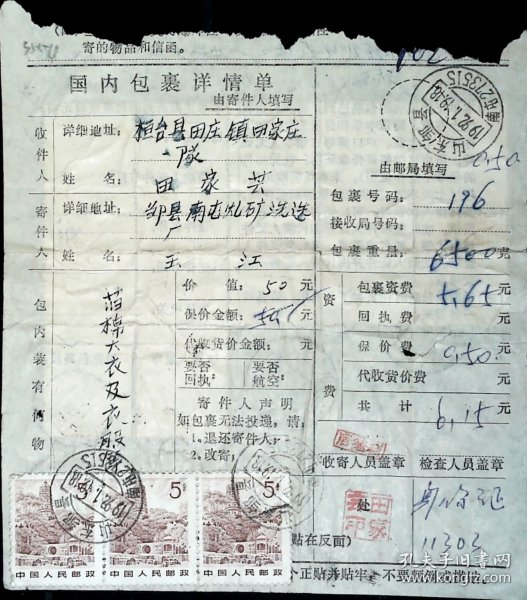 寄的物品和信函。
国内包裹详情单
由寄件人填写
收件人
详细地址：桓台县田庄镇田家庄
队
姓名：田家芸
寄件人
详细地址：邹县南屯煤矿洗选
厂
姓名：王江
包内装有何物
旧棉大衣及衣服
价值：50元
保价金额：50元
代收货价金额：元
要否回执：
要否航空：
寄件人声明
如包裹无法投递，请：
1.退还寄件人；
2.改寄：
由邮局填写
包裹号码：196
接收局号码：
包裹重量：6500克
资费
包裹资费 5.65元
回执费 元
保价费 0.50元
代收货价费 元
共计 6.15元
收寄人员盖章
检查人员盖章
处
身份证
11302
贴在反面）
个正贴并贴牢。不要
山东邹县
5
5
5
中国人民邮政
中国人民邮政
中国人民邮政
孔夫子旧书网